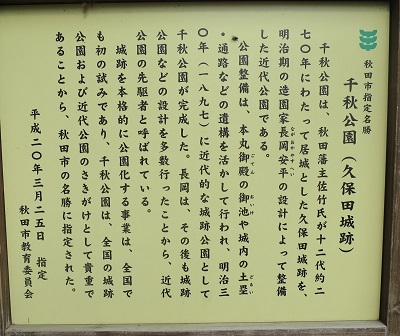 秋田市指定名勝
千秋公園（久保田城跡）
千秋公園は、秋田藩主佐竹氏が十二代約二
七〇年にわたって居城とした久保田城跡を、
明治期の造園家長岡安平の設計によって整備
した近代公園である。
公園整備は、本丸御殿の御池や城内の土塁
・通路などの遺構を活かして行われ、明治三
〇年（一八九七）に近代的な城跡公園として
千秋公園が完成した。長岡は、その後も城跡
公園などの設計を多数行ったことから、近代
公園の先駆者と呼ばれている。
城跡を本格的に公園化する事業は、全国で
も初の試みであり、千秋公園は、全国の城跡
公園および近代公園のさきがけとして貴重で
あることから、秋田市の名勝に指定された。
平成二〇年三月二五日 指定
秋田市教育委員会